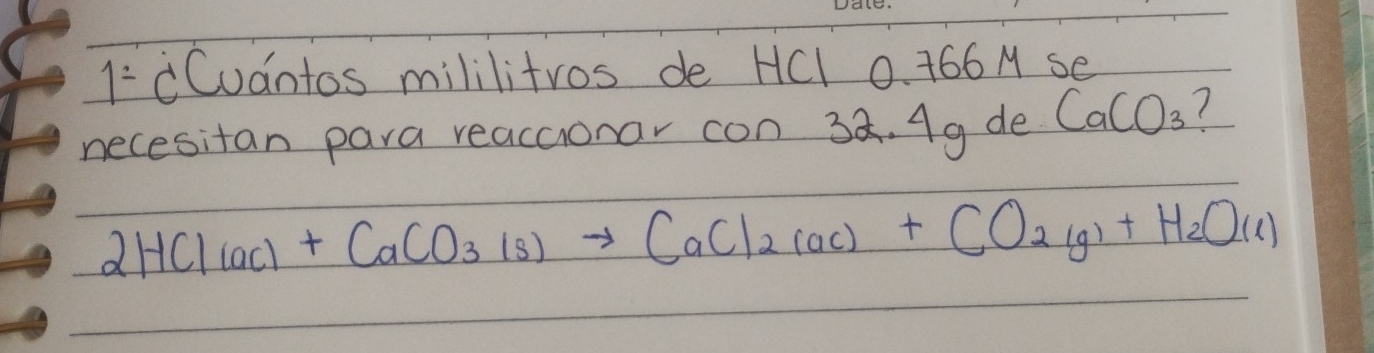 Date:
1- ¿Cuántos mililitros de HCl 0.766 M se
necesitan para reaccionar con 32.4g de CaCO3?
2HCl (ac) + CaCO3 (s) → CaCl2 (ac) + CO2 (g) + H2O(l)